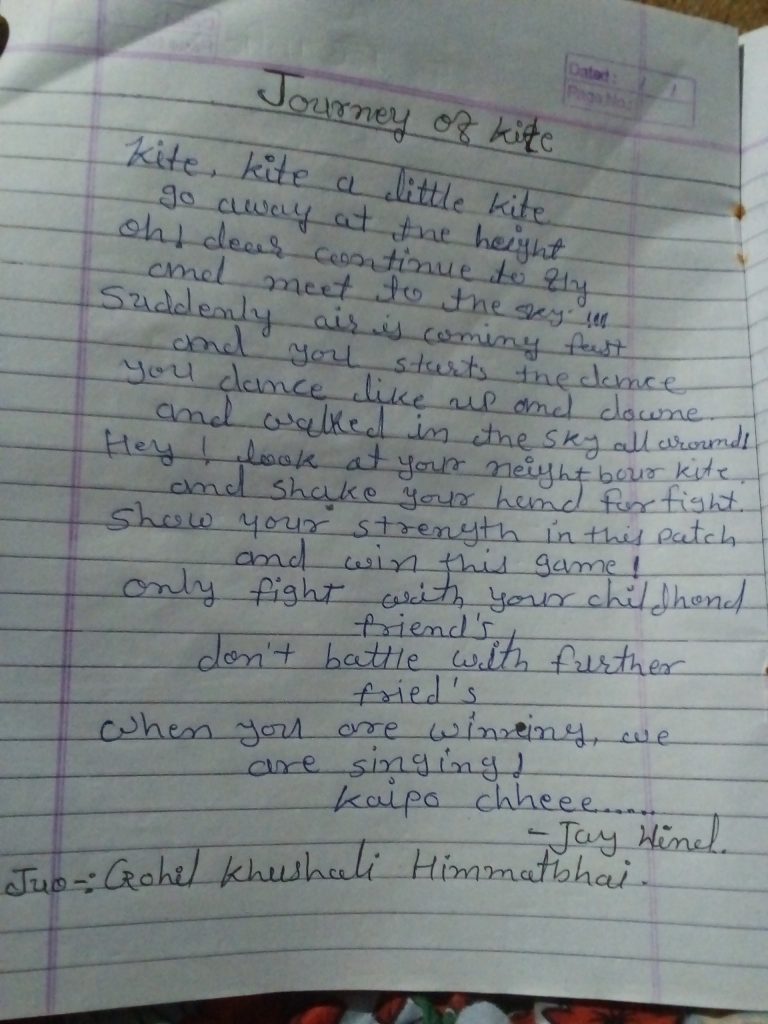 Dated: / /
Page No.:
Journey of kite
kite, kite a little kite
go away at the height
oh! dear continue to fly
and meet to the sky !!!
Suddenly air is coming fast
and you starts the dance
you dance like up and downe.
and walked in the sky all around!
Hey! look at your neightbour kite.
and shake your hand for fight.
Show your strength in this patch
and win this game!
only fight with your childhood
friend's,
don't battle with further
fried's
when you are winning, we
are singing!
kaipo chheee......
- Jay Hind.
Gohil Khushali Himmatbhai.